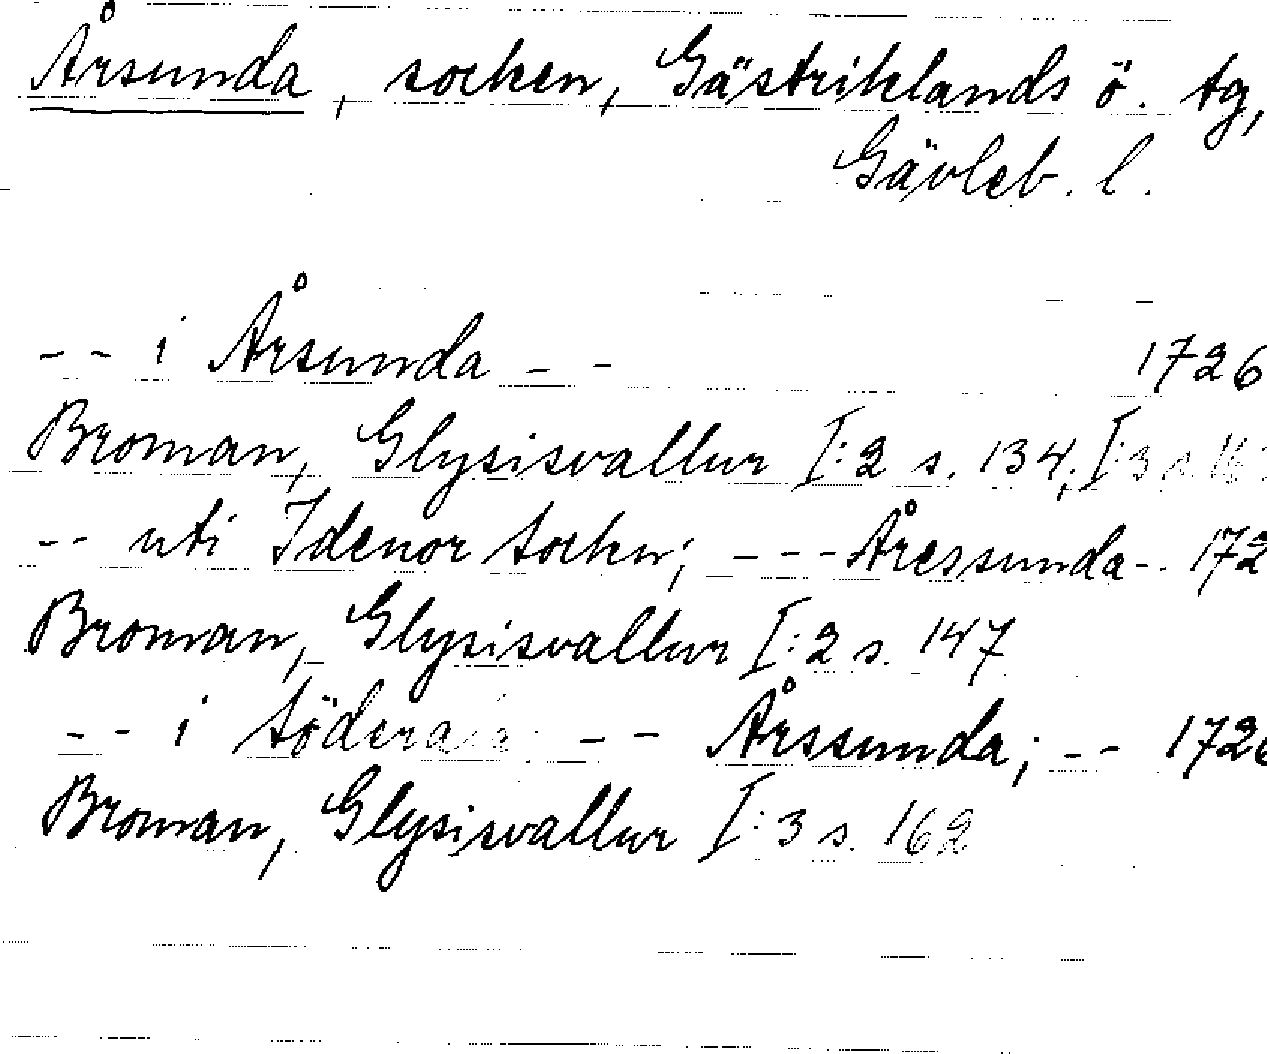 Årsunda, socken, Gästriklands ö. tg,
Gävleb. l.
-- i Årsunda -- 1726
Broman, Glysisvallur I:2 s. 134; I:3 s.
-- uti Idenor Sochn; --- Åressunda -- 172
Broman, Glysisvallur I:2 s. 147
-- i -- Årssunda; -- 1726
Broman, Glysisvallur I:3 s. 162